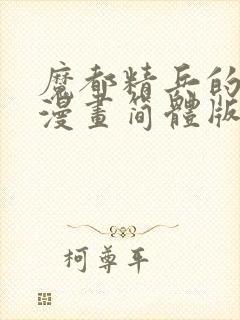 魔都精兵的
漫畫簡體版
柯尊平